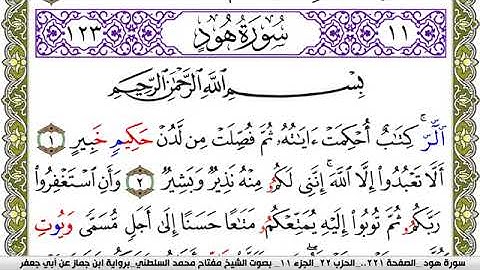 ١٢٣ سُورَةُ هُودٍ ١١
بِسْمِ اللَّهِ الرَّحْمَٰنِ الرَّحِيمِ
الٓرۚ كِتَٰبٌ أُحْكِمَتْ ءَايَٰتُهُۥ ثُمَّ فُصِّلَتْ مِن لَّدُنْ حَكِيمٍ خَبِيرٍ ١
أَلَّا تَعْبُدُوٓا۟ إِلَّا ٱللَّهَۚ إِنَّنِى لَكُمُۥ مِنْهُ نَذِيرٌ وَبَشِيرٌ ٢ وَأَنِ ٱسْتَغْفِرُوا۟
رَبَّكُمُۥ ثُمَّ تُوبُوٓا۟ إِلَيْهِ يُمَتِّعْكُمُۥ مَتَٰعًا حَسَنًا إِلَىٰٓ أَجَلٍ مُّسَمًّى وَيُوتِ
سورة هود _الصفحة ٢٢١.. الحزب ٢٢_الجزء ١١_ بصوت الشيخ مفتاح محمد السلطني_برواية ابن جماز عن أبي جعفر